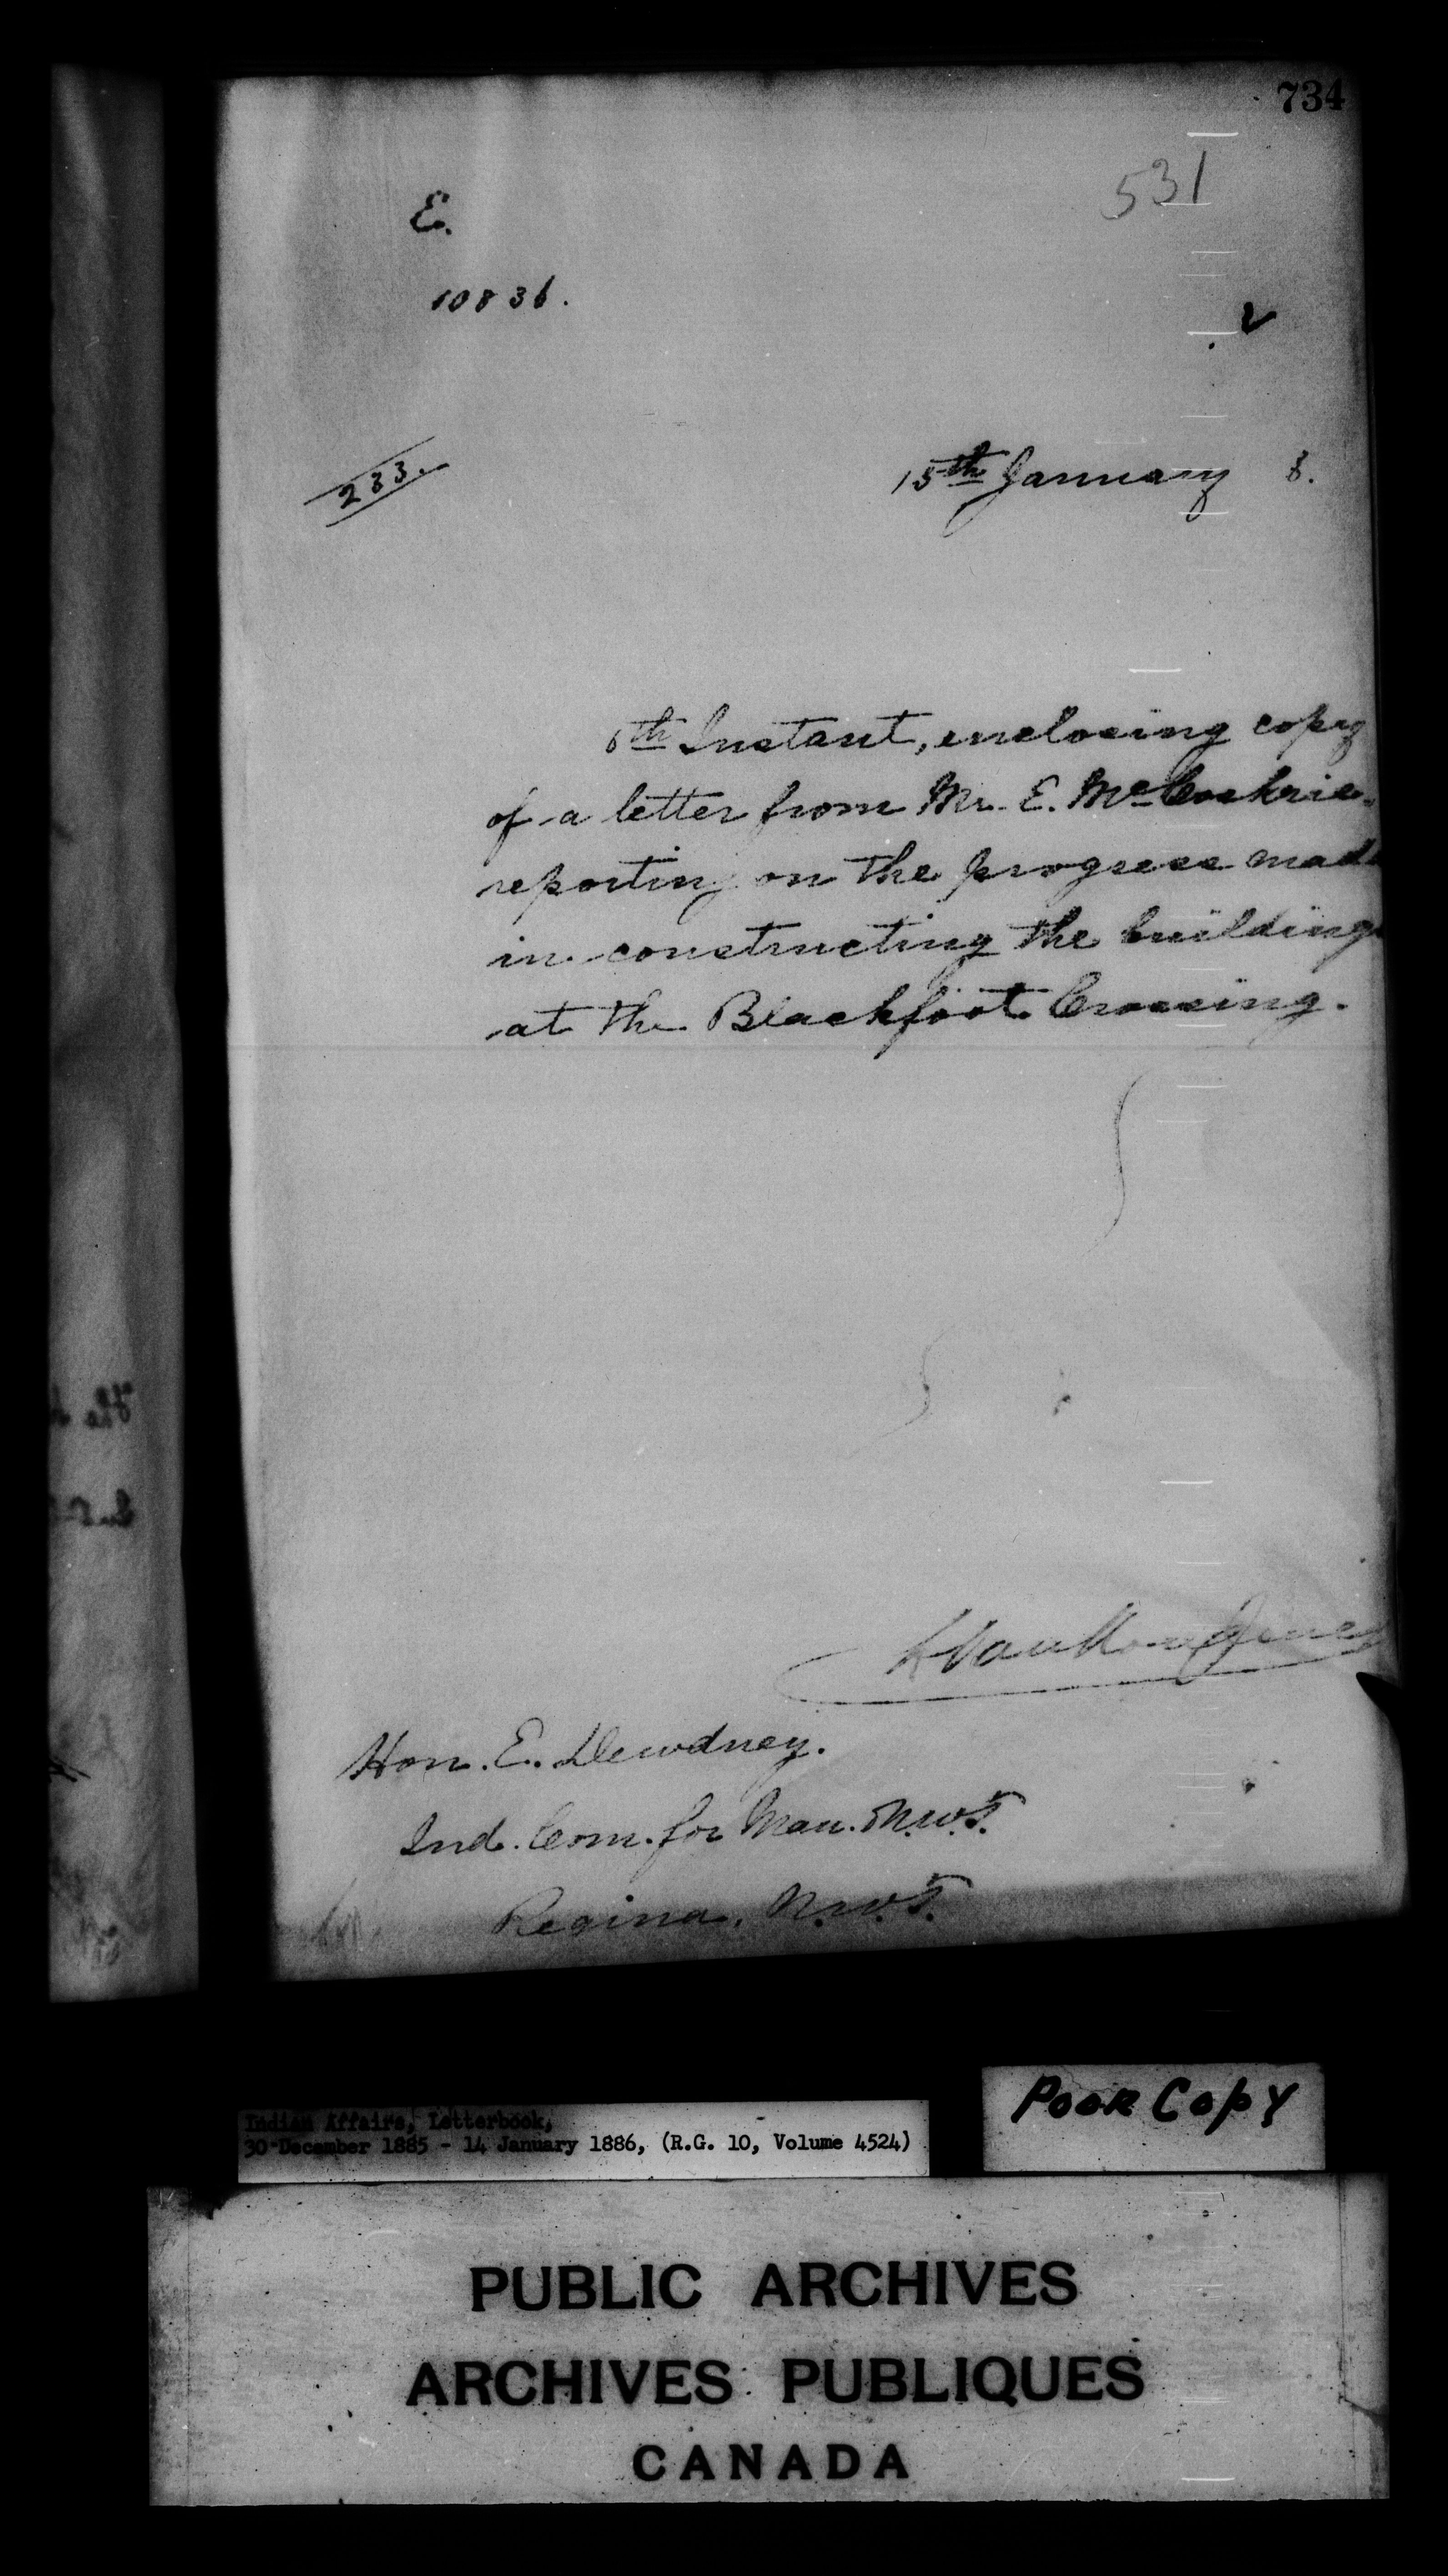 734
531
E.
10836.
233.
15th January 8.
6th Instant, enclosing copy
of a letter from Mr. E. McCoskrie
reporting on the progress made
in constructing the building
at the Blackfoot Crossing.
L VanKoughnet
Hon. E. Dewdney.
Ind. Com. for Man. N.W.T.
Regina. N.W.T.
Indian Affairs, Letterbook,
30 December 1885 - 14 January 1886, (R.G. 10, Volume 4524)
POOR COPY
PUBLIC ARCHIVES
ARCHIVES PUBLIQUES
CANADA